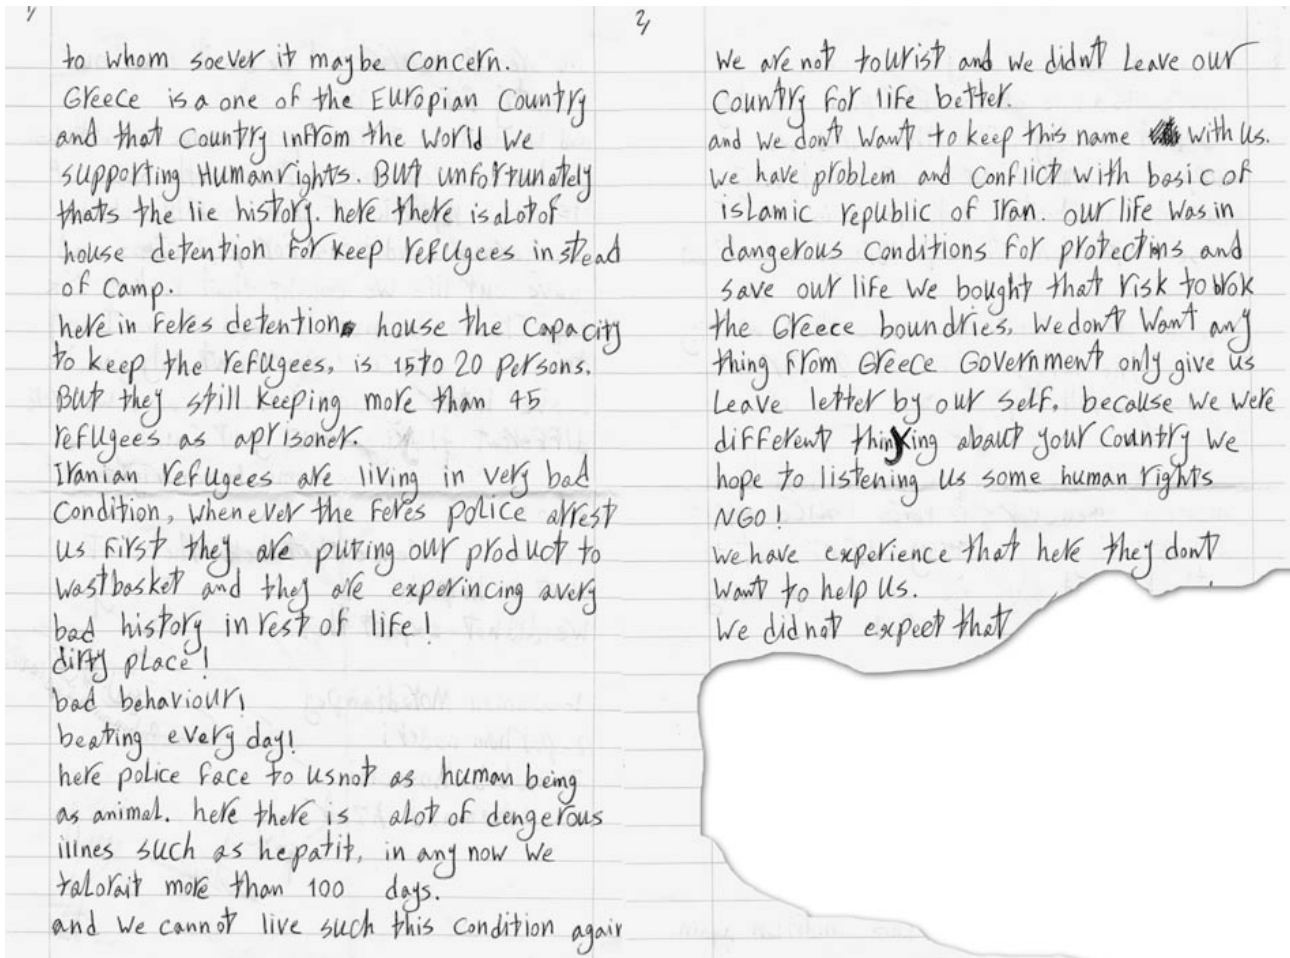 1,
to whom soever it maybe concern.
Greece is a one of the Europian Country
and that Country infrom the World We
supporting Humanrights. But unfortunately
thats the lie history. here there is alot of
house detention for keep refugees in stead
of Camp.
here in feres detention house the Capacity
to keep the refugees, is 15 to 20 Persons.
But they still keeping more than 45
refugees as aprisoner.
Iranian refugees are living in very bad
Condition, Whenever the feres police arrest
us first they are puting our product to
Wastbasket and they are experincing avery
bad history in rest of life!
dirty place!
bad behaviour!
beating every day!
here police face to us not as human being
as animal. here there is alot of dengerous
illnes such as hepatit, in any now We
talorait more than 100 days.
and We cannot live such this Condition again
2,
We are not tourist and we didnt Leave our
Country for life better.
and we don't Want to keep this name with us.
we have problem and Conflict with basic of
islamic republic of Iran. our life Was in
dangerous Conditions for protections and
save our life we bought that risk to brok
the Greece boundries, We dont Want any
thing from Greece Government only give us
Leave letter by our self, because we were
different thinking about your Country We
hope to listening us some human rights
NGO!
we have experience that here they dont
Want to help us.
We did not expect that